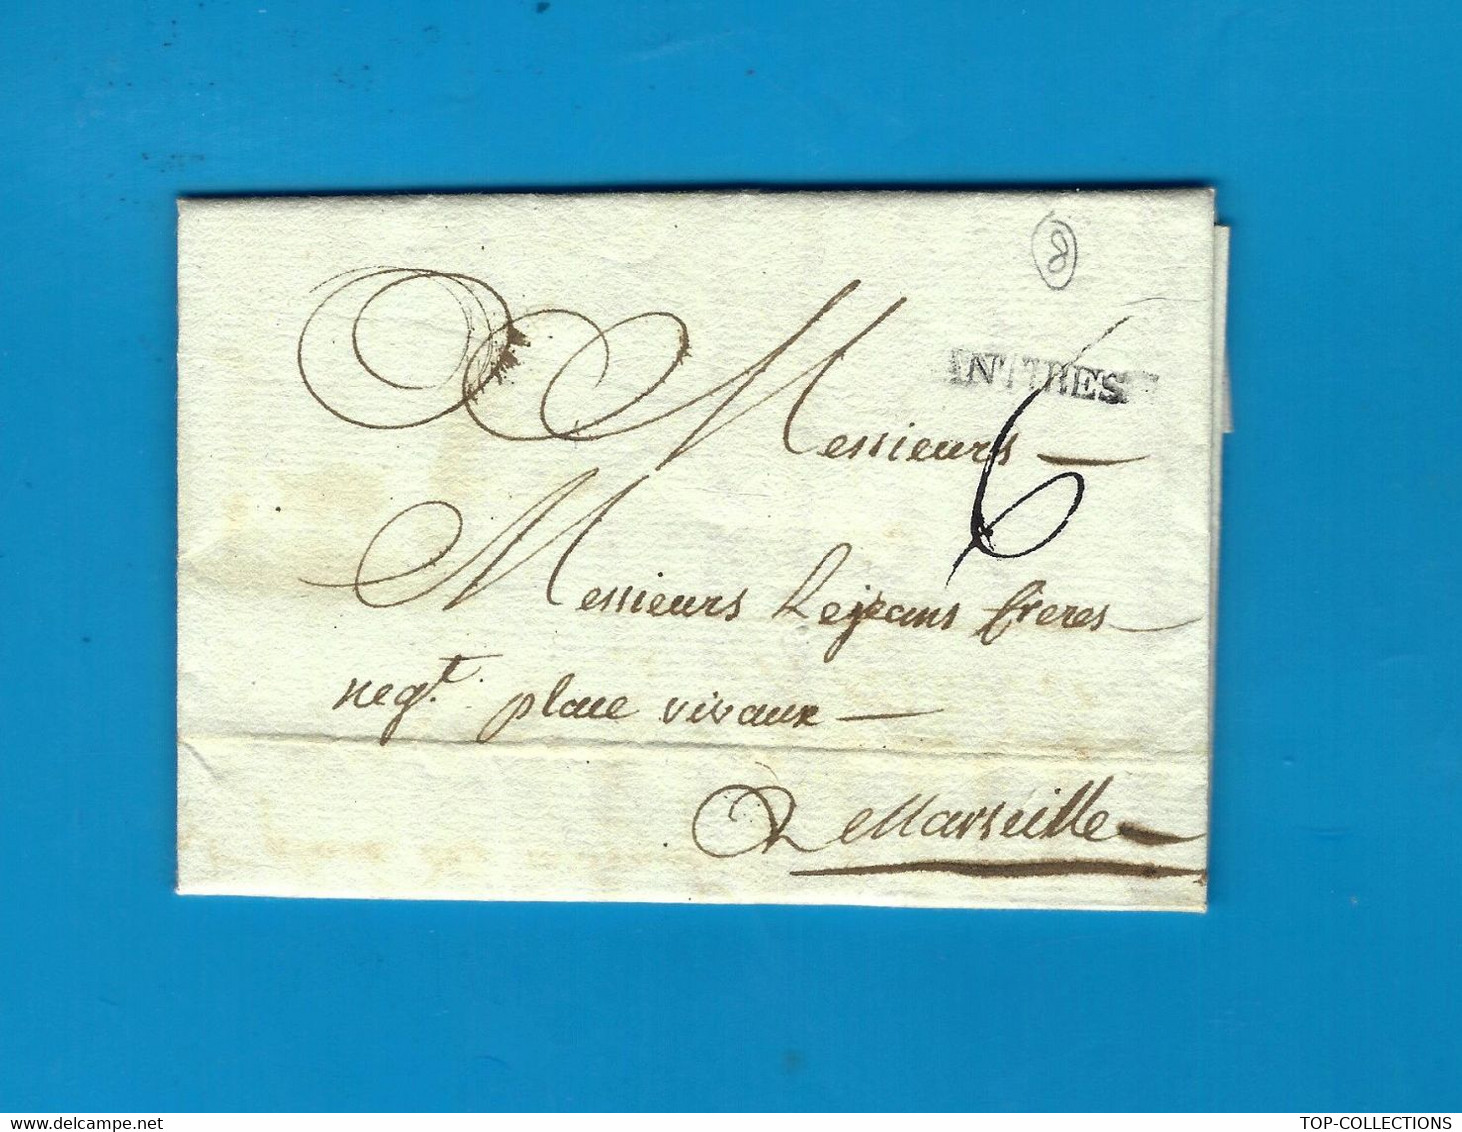 8
ANTIBES
6
Messieurs
Messieurs Lejeans freres
negt. place vivaux
A Marseille
www.delcampe.net
TOP-COLLECTIONS